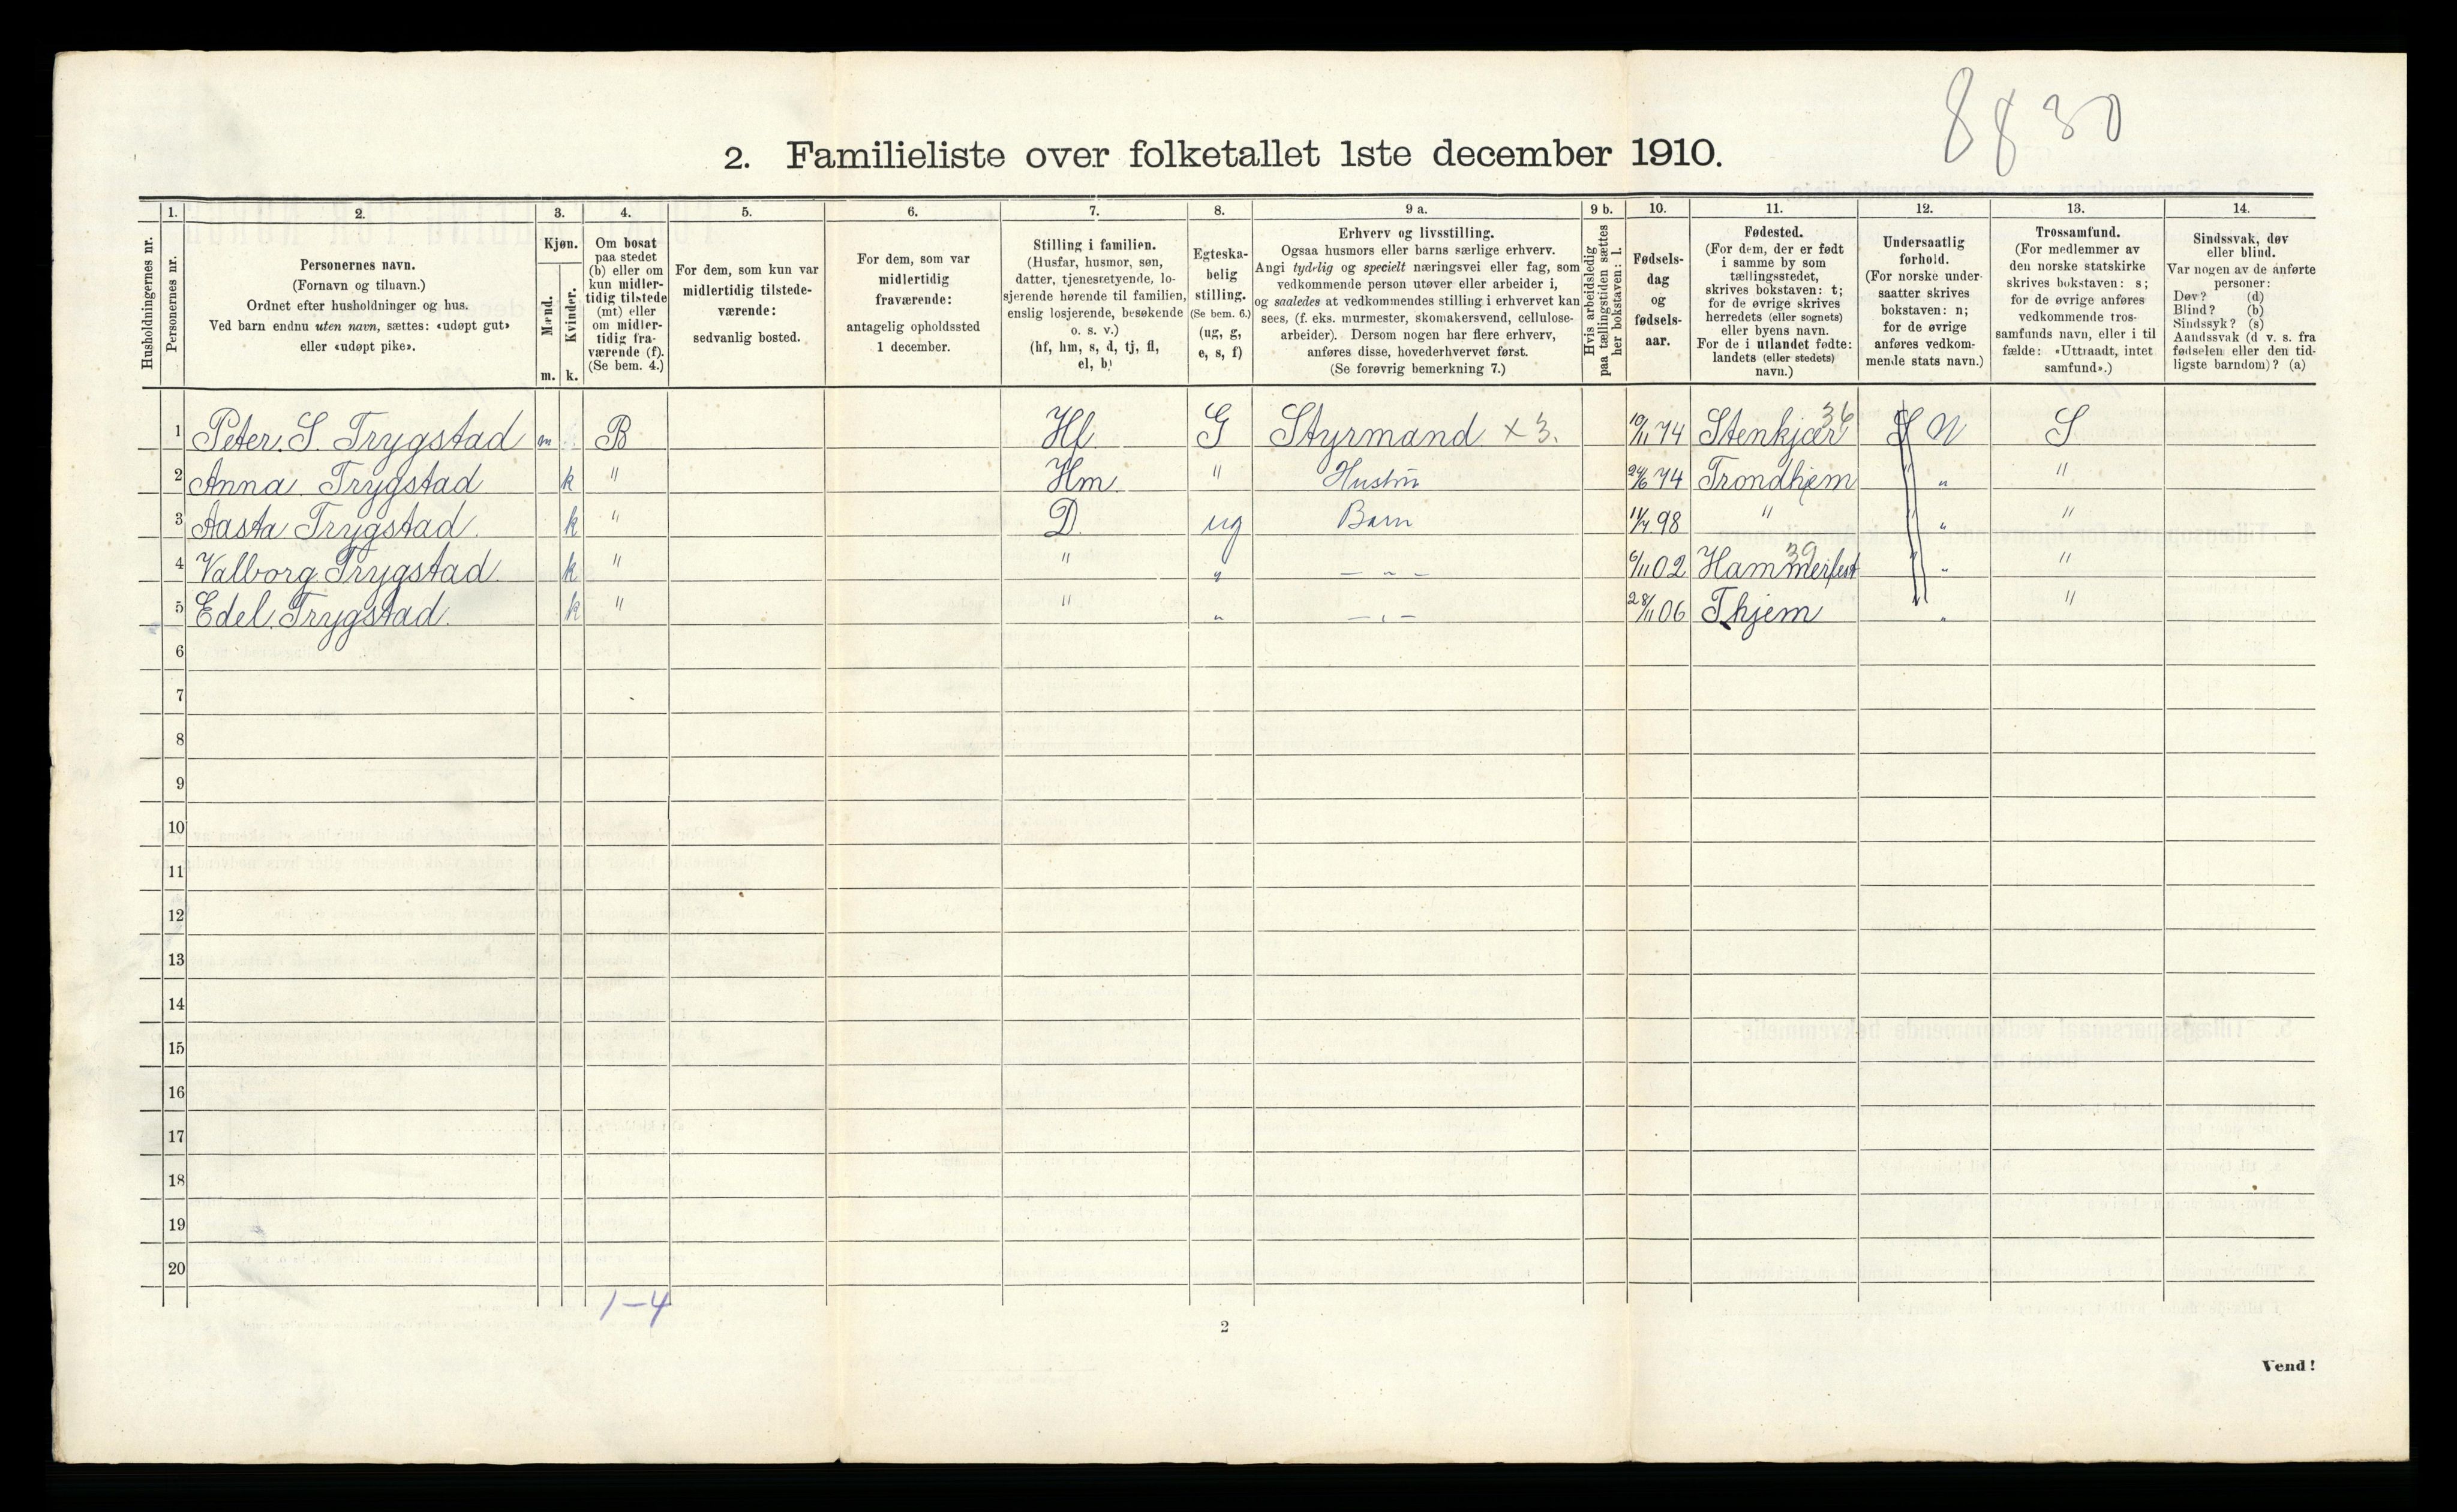 8830
2. Familieliste over folketallet 1ste december 1910.
Husholdningernes nr.
1. Personernes nr.
2. Personernes navn. (Fornavn og tilnavn.) Ordnet efter husholdninger og hus. Ved barn endnu uten navn, sættes: «udøpt gut» eller «udøpt pike».
3. Kjøn. Mænd. m. Kvinder. k.
4. Om bosat paa stedet (b) eller om kun midlertidig tilstede (mt) eller om midlertidig fraværende (f). (Se bem. 4.)
5. For dem, som kun var midlertidig tilstedeværende: sedvanlig bosted.
6. For dem, som var midlertidig fraværende: antagelig opholdssted 1 december.
7. Stilling i familien. (Husfar, husmor, søn, datter, tjenestetyende, losjerende hørende til familien, enslig losjerende, besøkende o. s. v.) (hf, hm, s, d, tj, fl, el, b)
8. Egteskabelig stilling. (Se bem. 6.) (ug, g, e, s, f)
9 a. Erhverv og livsstilling. Ogsaa husmors eller barns særlige erhverv. Angi tydelig og specielt næringsvei eller fag, som vedkommende person utøver eller arbeider i, og saaledes at vedkommendes stilling i erhvervet kan sees, (f. eks. murmester, skomakersvend, cellulosearbeider). Dersom nogen har flere erhverv, anføres disse, hovederhvervet først. (Se forøvrig bemerkning 7.)
9 b. Hvis arbeidsledig paa tællingstiden sættes her bokstaven: l.
10. Fødselsdag og fødselsaar.
11. Fødested. (For dem, der er født i samme by som tællingsstedet, skrives bokstaven: t; for de øvrige skrives herredets (eller sognets) eller byens navn. For de i utlandet fødte: landets (eller stedets) navn.)
12. Undersaatlig forhold. (For norske undersaatter skrives bokstaven: n; for de øvrige anføres vedkommende stats navn.)
13. Trossamfund. (For medlemmer av den norske statskirke skrives bokstaven: s; for de øvrige anføres vedkommende trossamfunds navn, eller i tilfælde: «Uttraadt, intet samfund».)
14. Sindssvak, døv eller blind. Var nogen av de anførte personer: Døv? (d) Blind? (b) Sindssyk? (s) Aandssvak (d v. s. fra fødselen eller den tidligste barndom)? (a)
1 Peter. S. Trygstad m B Hf G Styrmand x 3. 10/11 74 Stenkjær 36 S N S
2 Anna Trygstad k " Hm " Hustru 24/6 74 Trondhjem " " "
3 Aasta Trygstad. k " D. ug Barn 11/7 98 " " " "
4 Valborg Trygstad. k " " " — " — 6/11 02 Hammerfest 39 " " "
5 Edel. Trygstad. k " " " — " — 28/11 06 Thjem " " "
6
7
8
9
10
11
12
13
14
15
16
17
18
19
20
1–4
2
Vend!